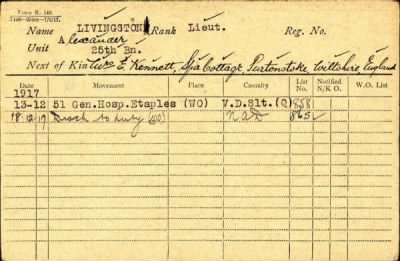 Form R. 149.
Name LIVINGSTON Rank Lieut. Reg. No.
Alexander
Unit 25th Bn.
Next of Kin Mrs E. Kennett, Spa Cottage, Purtonstoke, Wiltshire, England
Date Movement Place Casualty List No. Notified N/K O. W.O. List
1917
13-12 51 Gen.Hosp.Etaples (WO) V.D.Slt.(Q) 858
18.12.17 Disch to duty (WO) N A D 865